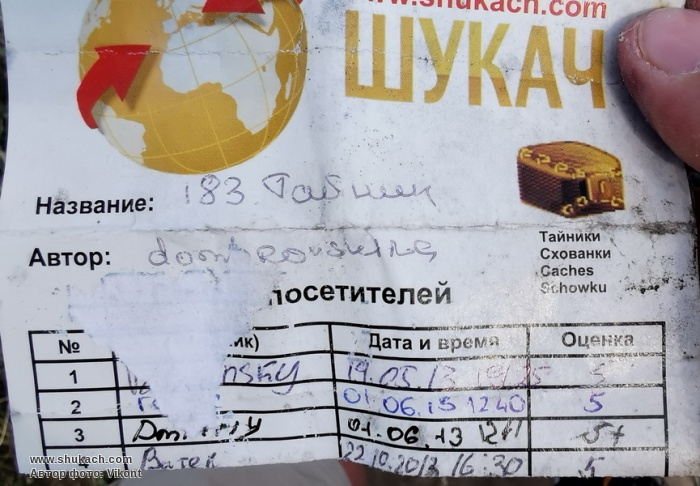 www.shukach.com
ШУКАЧ
Название: 183 Тайник
Автор:
Тайники
Схованки
Caches
Schowku
посетителей
№ ик) Дата и время Оценка
1 nsky 19.05.13 5
2 01.06.13 1240 5
3 Dmitriy 01.06.13 5+
4 Витек 22.10.2013 16:30 5
www.shukach.com
Автор фото: Vikont